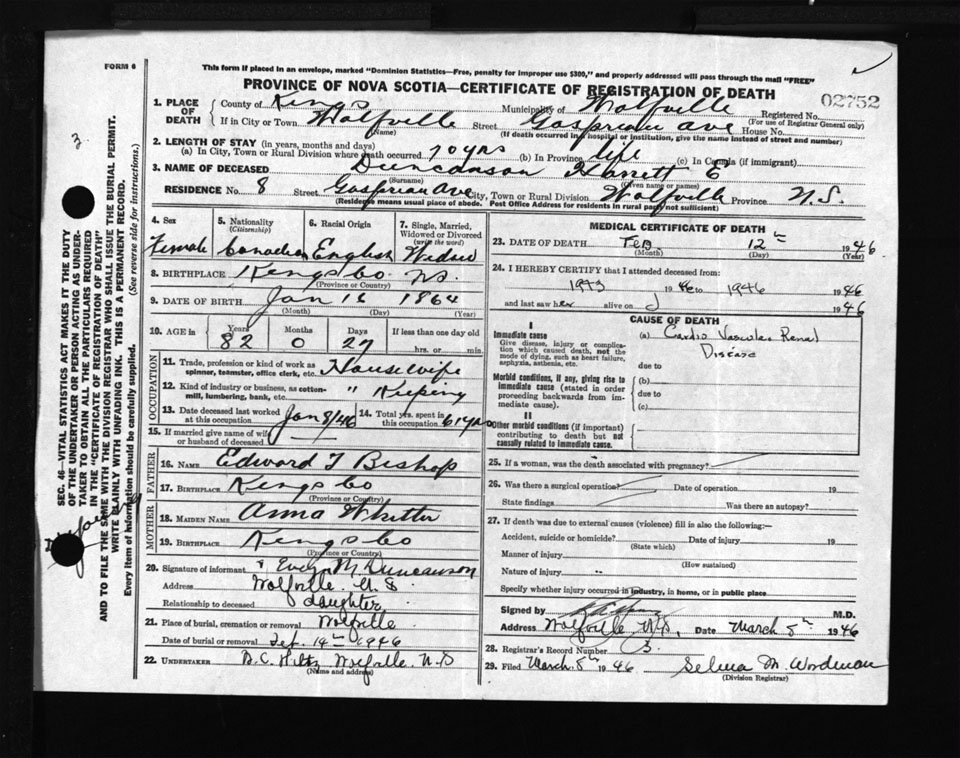 FORM 6
This form if placed in an envelope, marked "Dominion Statistics—Free, penalty for improper use $300," and properly addressed will pass through the mail "FREE"
PROVINCE OF NOVA SCOTIA—CERTIFICATE OF REGISTRATION OF DEATH
02752
1. PLACE OF DEATH
County of Kings Municipality of Wolfville Registered No.
(For use of Registrar General only)
If in City or Town Wolfville Street Gasprieau Ave House No.
(Name) (If death occurred in a hospital or institution, give the name instead of street and number)
2. LENGTH OF STAY (in years, months and days)
(a) In City, Town or Rural Division where death occurred 70 yrs (b) In Province life (c) In Canada (if immigrant)
3. NAME OF DECEASED Duncanson Harriett E
(Surname) (Given name or names)
RESIDENCE No. 8 Street Gasprieau Ave City, Town or Rural Division Wolfville Province N.S.
(Residence means usual place of abode. Post Office Address for residents in rural parts not sufficient)
4. Sex Female
5. Nationality (Citizenship) Canadian
6. Racial Origin English
7. Single, Married, Widowed or Divorced (write the word) Widow
8. BIRTHPLACE Kings Co NS
(Province or Country)
9. DATE OF BIRTH Jan 16 1864
(Month) (Day) (Year)
10. AGE in Years 82 Months 0 Days 27 If less than one day old
hrs. or min.
OCCUPATION
11. Trade, profession or kind of work as spinner, teamster, office clerk, etc. Housewife
12. Kind of industry or business, as cotton-mill, lumbering, bank, etc. " Keeping
13. Date deceased last worked at this occupation Jan 8/46 14. Total yrs. spent in this occupation 61 yrs
15. If married give name of wife or husband of deceased
FATHER
16. NAME Edward T Bishop
17. BIRTHPLACE Kings Co
(Province or Country)
MOTHER
18. MAIDEN NAME Anna Whitter
19. BIRTHPLACE Kings Co
(Province or Country)
20. Signature of informant Evelyn M Duncanson
Address Wolfville N S
Relationship to deceased daughter
21. Place of burial, cremation or removal Wolfville
Date of burial or removal Feb. 14th 1946
22. UNDERTAKER B. C. Hiltz Wolfville N.S
(Name and address)
MEDICAL CERTIFICATE OF DEATH
23. DATE OF DEATH Feb 12th 1946
(Month) (Day) (Year)
24. I HEREBY CERTIFY that I attended deceased from:
1943 19 to 1946 1946
and last saw her alive on J 1946
CAUSE OF DEATH
I
Immediate cause
Give disease, injury or complication which caused death, not the mode of dying, such as heart failure, asphyxia, asthenia, etc.
(a) Cardio Vascular Renal
Disease
due to
Morbid conditions, if any, giving rise to immediate cause (stated in order proceeding backwards from immediate cause).
(b)
due to
(c)
II
Other morbid conditions (if important) contributing to death but not causally related to immediate cause.
25. If a woman, was the death associated with pregnancy?
26. Was there a surgical operation? Date of operation 19
State findings Was there an autopsy?
27. If death was due to external causes (violence) fill in also the following:—
Accident, suicide or homicide? Date of injury 19
(State which)
Manner of injury
(How sustained)
Nature of injury
Specify whether injury occurred in industry, in home, or in public place
Signed by M.D.
Address Wolfville N.S. Date March 8th 1946
28. Registrar's Record Number 3
29. Filed March 8th 1946 Selma M. Wordman
(Division Registrar)
SEC. 46—VITAL STATISTICS ACT MAKES IT THE DUTY
OF THE UNDERTAKER OR PERSON ACTING AS UNDER-
TAKER TO OBTAIN ALL THE PARTICULARS REQUIRED
IN THE "CERTIFICATE OF REGISTRATION OF DEATH"
AND TO FILE THE SAME WITH THE DIVISION REGISTRAR WHO SHALL ISSUE THE BURIAL PERMIT.
WRITE PLAINLY WITH UNFADING INK. THIS IS A PERMANENT RECORD.
Every item of information should be carefully supplied. (See reverse side for instructions.)